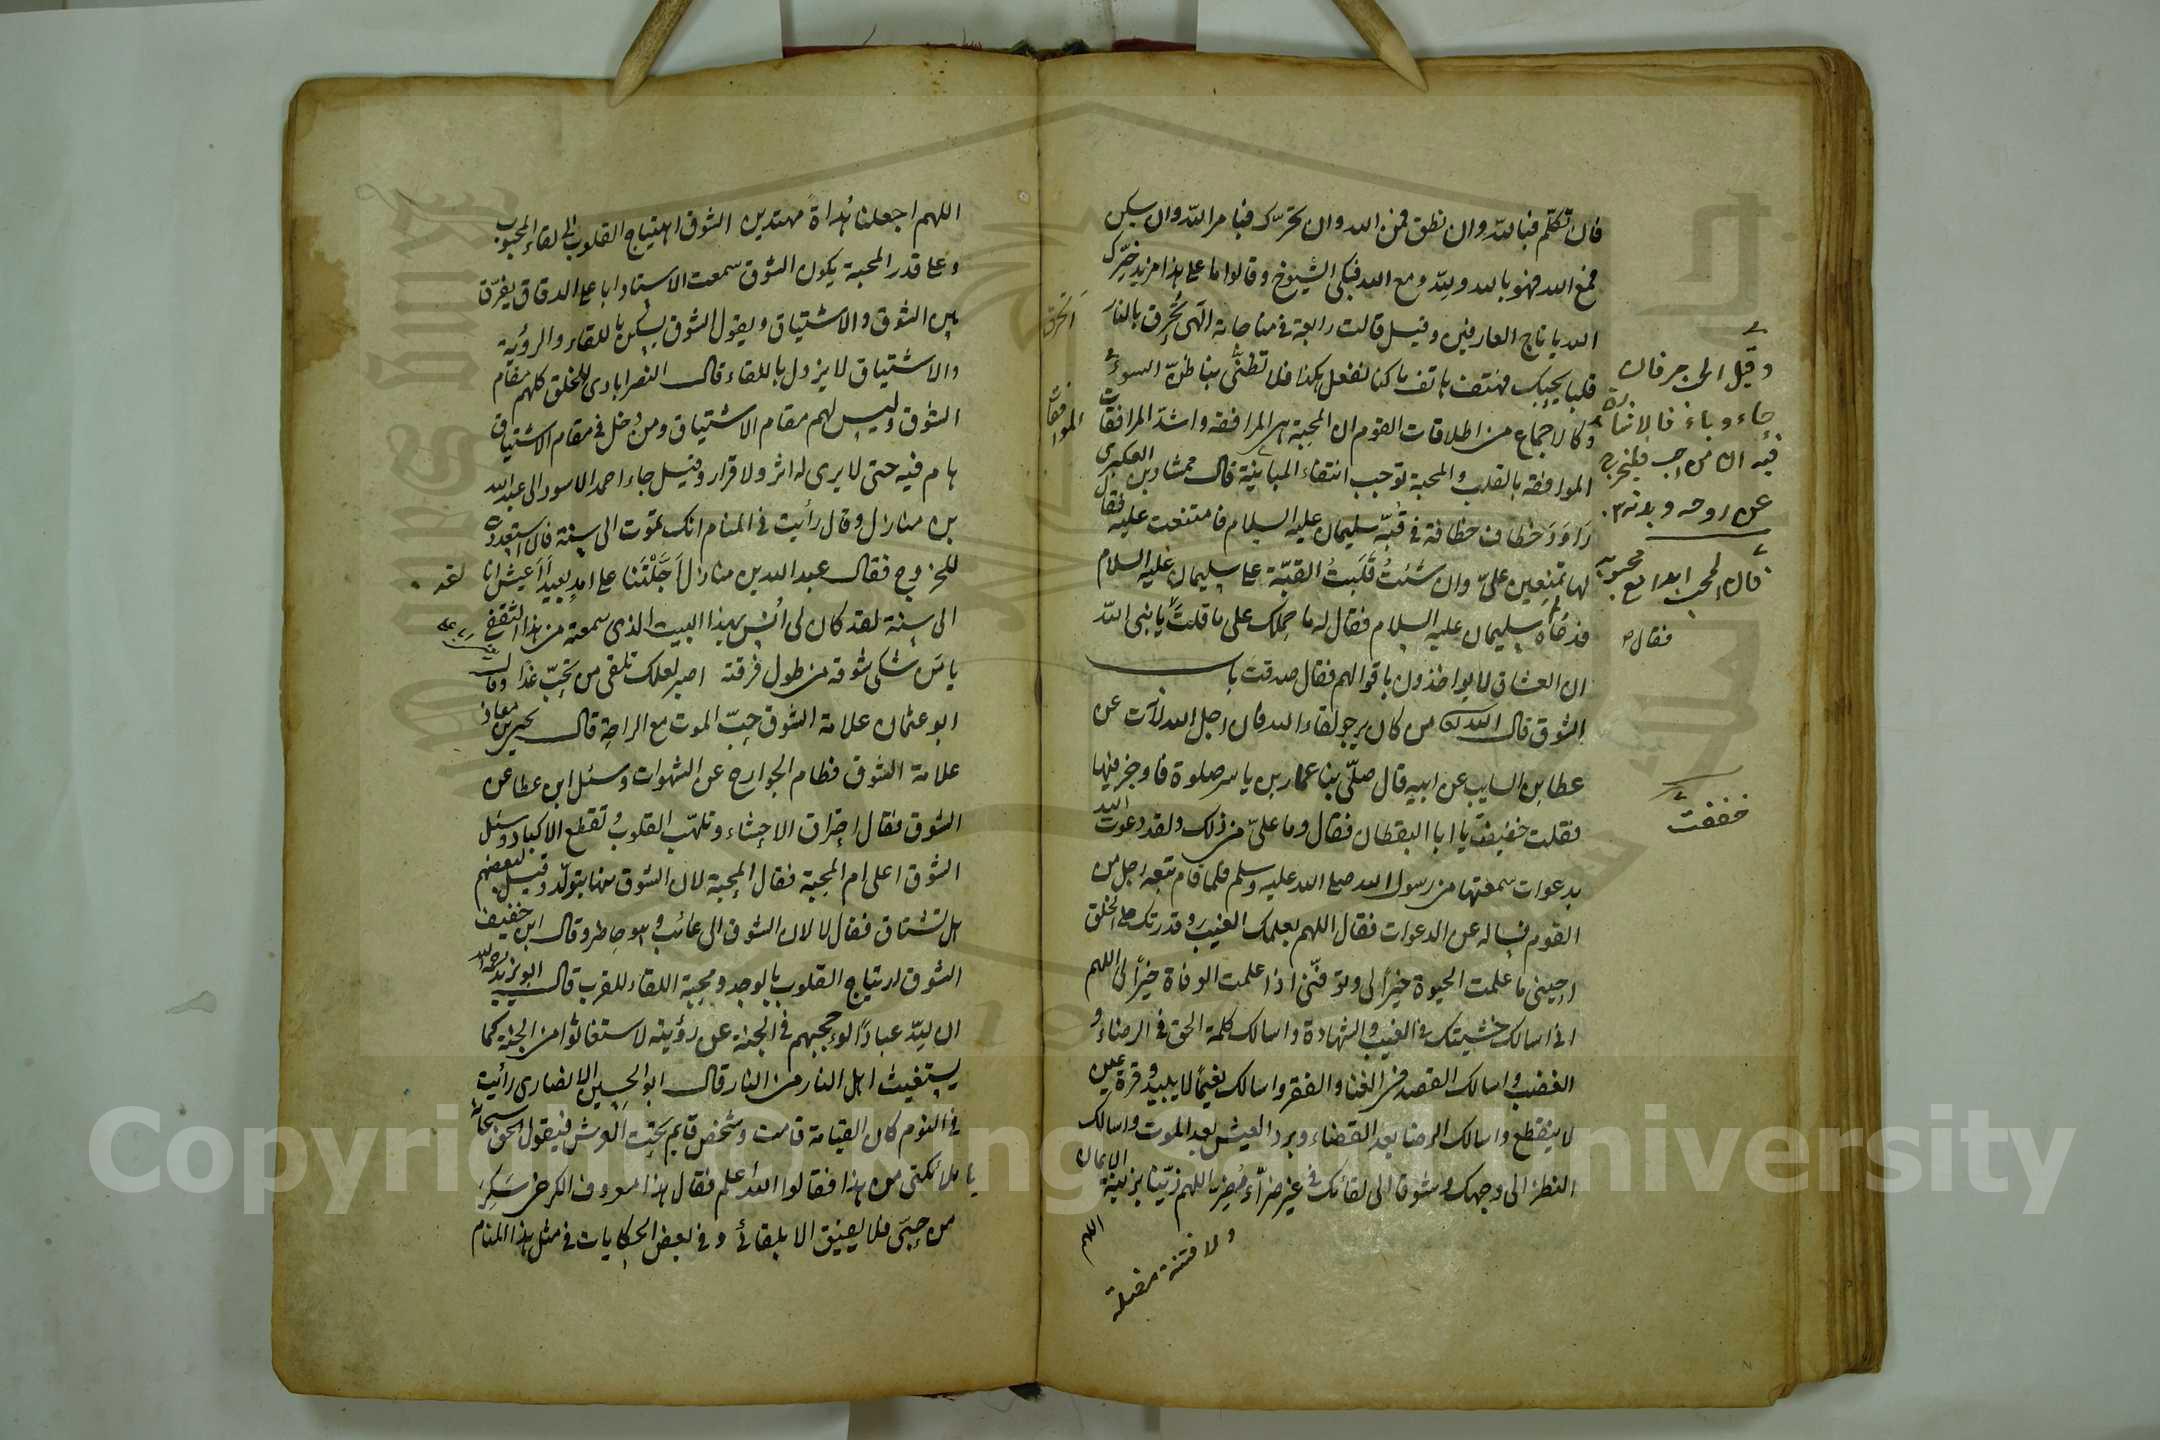 فان تكلّم فبالله وان نطق فمن الله وان تحرّك فبامر الله وان سكن
فمع الله فهو بالله ولله ومع الله فبكى الشيوخ وقالوا ما على هذا مزيد جبرك
الله يا تاج العارفين وقيل قالت رابعة في مناجاته الهى تُحْرِق بالنار
قلبا يحبك فهتف هاتف ما كنا نفعل هكذا فلا تظنّى بنا ظنّ السوء
وكالاجماع من اطلاقات القوم ان المحبة هى المرافقة واشد المرافقات
الموافقة بالقلب والمحبة توجب انتفاء المباينة قال ممشاد بن العكبرى
رَاوَدَ خطاف خطافة في قبّة سليمان عليه السلام فامتنعت عليه فقال
لها تمتنعين علىّ وان شئتُ قلبتُ القبّة على سليمان عليه السلام
فدعاه سليمان عليه السلام فقال له ما حملك على ما قلتَ يا نبى الله
ان العشاق لا يواخذون باقوالهم فقال صدقت باب
الشوق قال الله من كان يرجو لقاء الله فان اجل الله لآت عن
عطا بن السايب عن ابيه قال صلّى بنا عمار بن ياسر صلوة فاوجز فيها
فقلت خفيفت يا ابا اليقظان فقال وما علىّ من ذلك ولقد دعوت الله
بدعوات سمعتها من رسول الله صلى الله عليه وسلم فلما قام تبعه رجل من
القوم فساله عن الدعوات فقال اللهم بعلمك الغيب وقدرتك على الخلق
احينى ما علمت الحيوة خيرًا لى وتوفّنى اذا علمت الوفاة خيرًا لى اللهم
انى اسالك خشيتك فى الغيب والشهادة واسالك كلمة الحق فى الرضاء و
الغضب واسالك القصد فى الغنا والفقر واسالك نعيمًا لا يبيد وقرة عين
لا ينقطع واسالك الرضا بعد القضاء وبرد العيش بعد الموت واسالك
النظر الى وجهك وشوقا الى لقائك فى غير ضرّاء مُضِرة اللهم زيّنا بزينة الايمان
ولا فتنة مضلة
اللهم
وقيل الحب حرفان
حاء وباء فالاشارة
فيه ان من احب فليخرج
عن روحه وبدنه
قال المحب ابدا مع محبوبه
فقال
خففت
اتحرق
الموافقات
اللهم اجعلنا هُداةً مهتدين الشوق اهتياج القلوب الى لقاء المحبوب
وعلى قدر المحبة يكون الشوق سمعت الاستاد ابا على الدقاق يفرّق
بين الشوق والاشتياق ويقول الشوق يسكن باللقاء والرؤية
والاشتياق لا يزول باللقاء قال النصرابادى للخلق كلهم مقام
الشوق وليس لهم مقام الاشتياق ومن دخل فى مقام الاشتياق
هام فيه حتى لا يرى له اثر ولا قرار وقيل جاء احمد الاسود الى عبد الله
بن منازل وقال رأيت فى المنام انك تموت الى سنة فان استعددت
للخروج فقال عبد الله بن منازل أَجَّلْتَنا على امدٍ بعيدٍ أأعيش انا
الى سنة لقد كان لى أُنْس بهذا البيت الذى سمعته من هذا الثقفى
يا مَن شكى شوقه من طول فرقته اصبر لعلك تلقى من تحبّ غدا وقال
ابو عثمان علامة الشوق حبّ الموت مع الراحة قال يحيى بن معاذ
علامة الشوق فطام الجوارح عن الشهوات وسئل ابن عطا عن
الشوق فقال احتراق الاحشاء وتلهّب القلوب وتقطع الاكباد وسئل
الشوق اعلى ام المحبة فقال المحبة لان الشوق منها يتولّد وقيل لبعضهم
هل تشتاق فقال لا لان الشوق الى غائب وهو حاضر وقال ابن خفيف
الشوق ارتياح القلوب بالوجد ومحبة اللقاء للقرب قال ابو يزيد رحمه الله
ان لله عبادًا لو حجبهم فى الجنة عن رؤيته لاستغاثوا من الجنة كما
يستغيث اهل النار من النار قال ابو الحسين الانصارى رأيت
فى النوم كان القيامة قامت وشخص قايم تحت العرش فيقول الحق سبحانه
يا ملائكتى من هذا فقالوا الله اعلم فقال هذا معروف الكرخى سَكِرَ
من حبّى فلا يفيق الا بلقائى وفى بعض الحكايات فى مثل هذا المنام
لقد